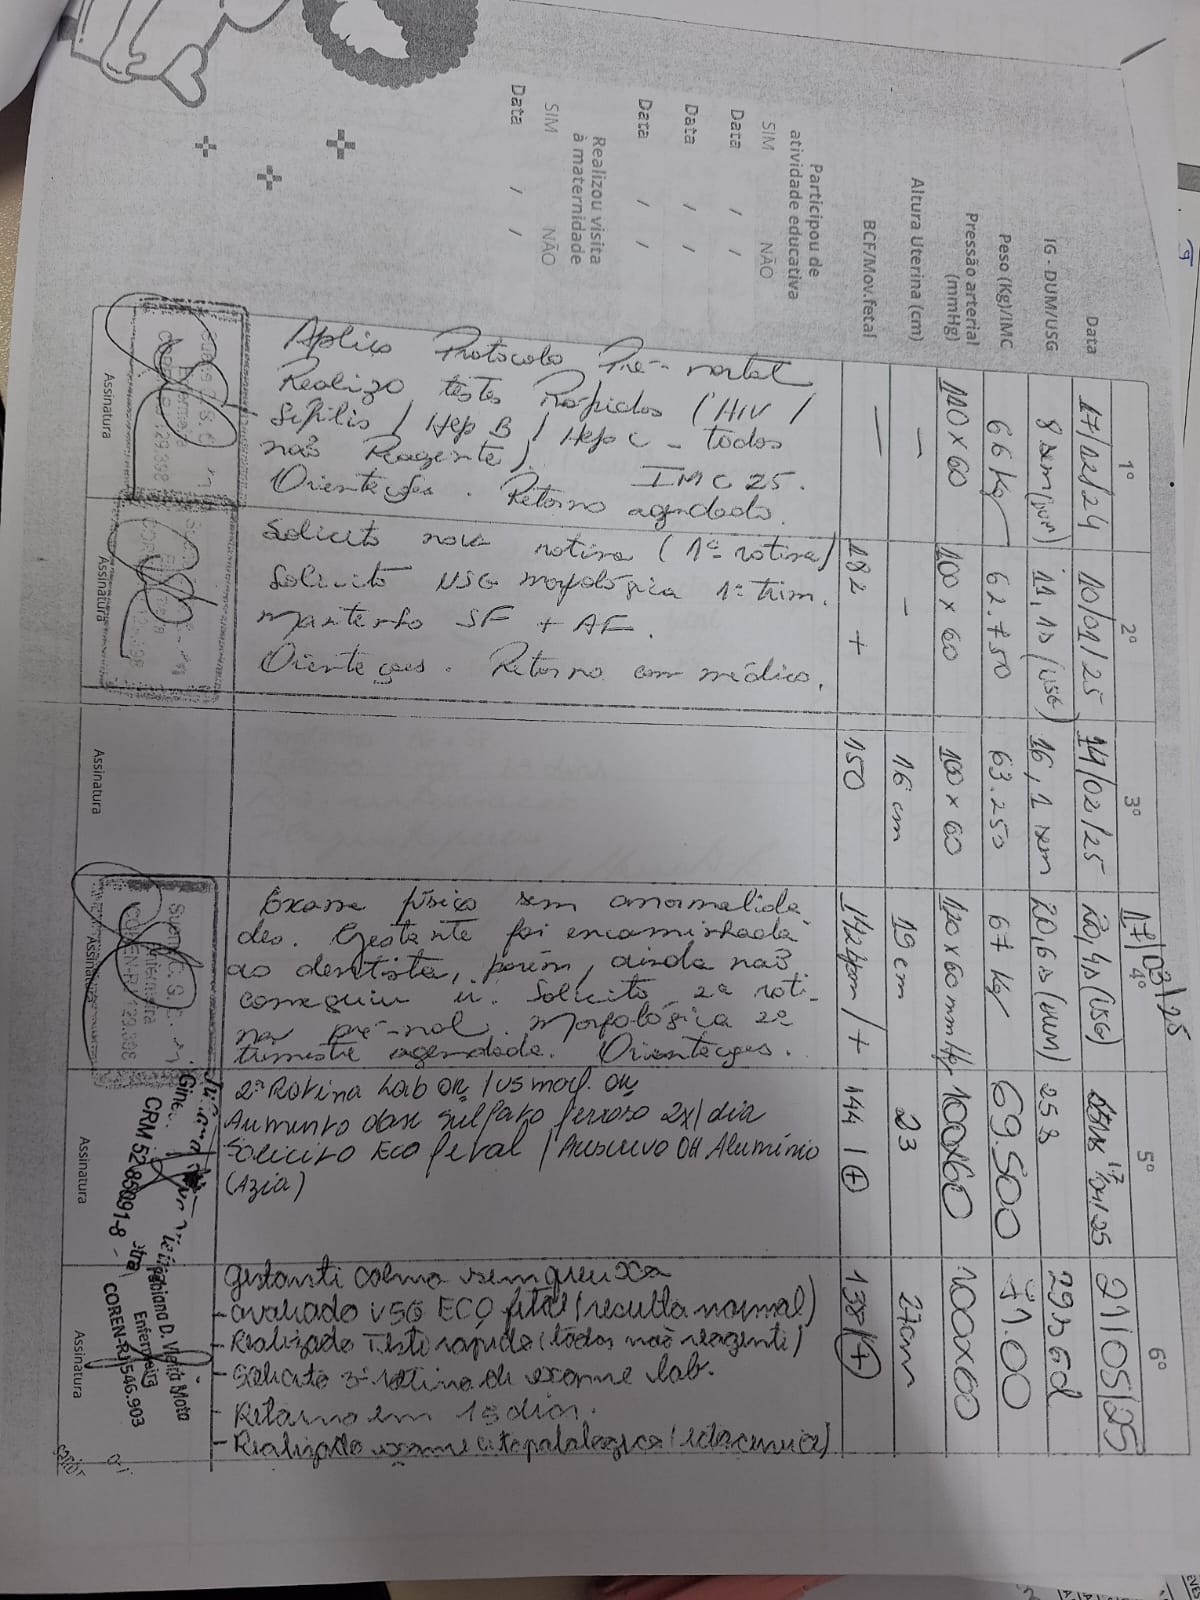 1º 2º 3º 4º 5º 6º
Data 17/12/24 10/01/25 14/02/25 17/03/25 17/04/25 21/05/25
IG - DUM/USG 8 sem (DUM) 11,1s (USG) 16,1 sem 20,4s (USG) 20,6s (DUM) 25 29s 6d
Peso (Kg)/IMC 66 kg 62.750 63.250 67 kg 69.500 71.00
Pressão arterial
(mmHg) 110 x 60 100 x 60 100 x 60 120 x 60 mmHg 100x60 100x60
Altura Uterina (cm) - - 16 cm 19 cm 23 27cm
BCF/Mov.fetal — 182 + 150 142bpm/+ 144 / + 138/+
Participou de
atividade educativa
SIM NÃO
Data / /
Data / /
Data / /
Realizou visita
à maternidade
SIM NÃO
Data / /
Aplico Protocolo Pré-natal
Realizo testes Rápidos (HIV /
Sífilis / Hep B / Hep C - todos
não Reagente). IMC 25.
Orientações. Retorno agendado.
Assinatura
Solicito nova rotina (1ª rotina)
Solicito USG morfológica 1º trim.
Mantenho SF + AF.
Orientações. Retorno com médico.
Assinatura
Assinatura
Exame físico sem anormalida
des. Gestante foi encaminhada
ao dentista, porém, ainda não
conseguiu ir. Solicito 2ª roti-
na pré-nal. Morfológica 2º
trimestre agendada. Orientações.
Enfermeira
COREN-RJ 129.398
Assinatura
2ª Rotina Lab OK / US morf. OK
Aumento dose sulfato ferroso 2x/dia
Solicito Eco fetal / Prescrevo OH Alumínio
(Azia)
CRM 5286091-8
Assinatura
gestante calma sem queixa
- avaliado USG ECO fetal (resulta normal)
- Realizado Teste rapido (todos não reagente)
- Solicito 3ª rotina de exame lab.
- Retorno em 15 dias.
- Realizado exame citopatologico
Fabiana D. Vieira Mota
Enfermeira
COREN-RJ 546.903
Assinatura